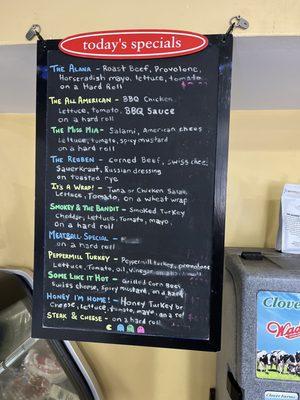 today's specials
The Alana - Roast Beef, Provolone,
Horseradish mayo, lettuce, tomato
on a Hard Roll
The All American - BBQ Chicken
Lettuce, tomato, BBQ Sauce
on a hard roll
The Miss Mia - Salami, American chees
Lettuce, tomato, spicy mustard
on a hard roll
The Reuben - Corned Beef, swiss chee
Sauerkraut, Russian dressing
on toasted rye
It's a Wrap! - Tuna or Chicken Salad
Lettuce, Tomato, on a wheat wrap
Smokey & the Bandit - Smoked Turkey
Cheddar, Lettuce, Tomato, mayo,
on a hard roll
Meatball Special -
on a hard roll
Peppermill Turkey - Peppermill turkey, provolone
Lettuce, Tomato, oil, Vinegar
Some Like it Hot - Grilled Corn Beef
Swiss cheese, Spicy Mustard, on a hard
Honey I'm Home! - Honey Turkey br
Cheese, Lettuce, tomato, mayo, on a roll
Steak & Cheese - on a hard roll
Clover
Clover Farms